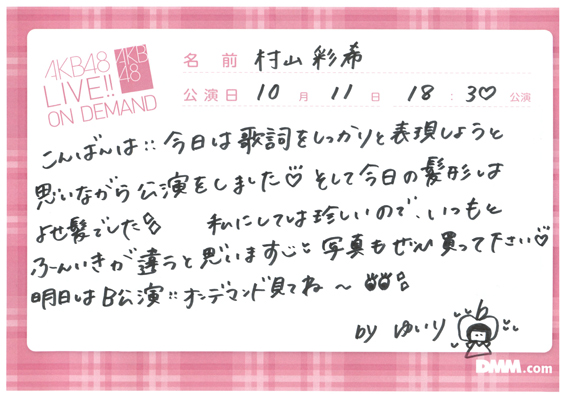 AKB48
LIVE!!
ON DEMAND
AKB
48
名 前 村山彩希
公演日 10 月 11 日 18 : 30♡ 公演
こんばんは!! 今日は歌詞をしっかりと表現しようと
思いながら公演をしました♡ そして今日の髪形は
よせ髪でした 私にしては珍しいので、いつもと
ふんいきが違うと思います 写真もぜひ買って下さい♡
明日はB公演!! オンデマンド見てね〜
by ゆいり
DMM.com